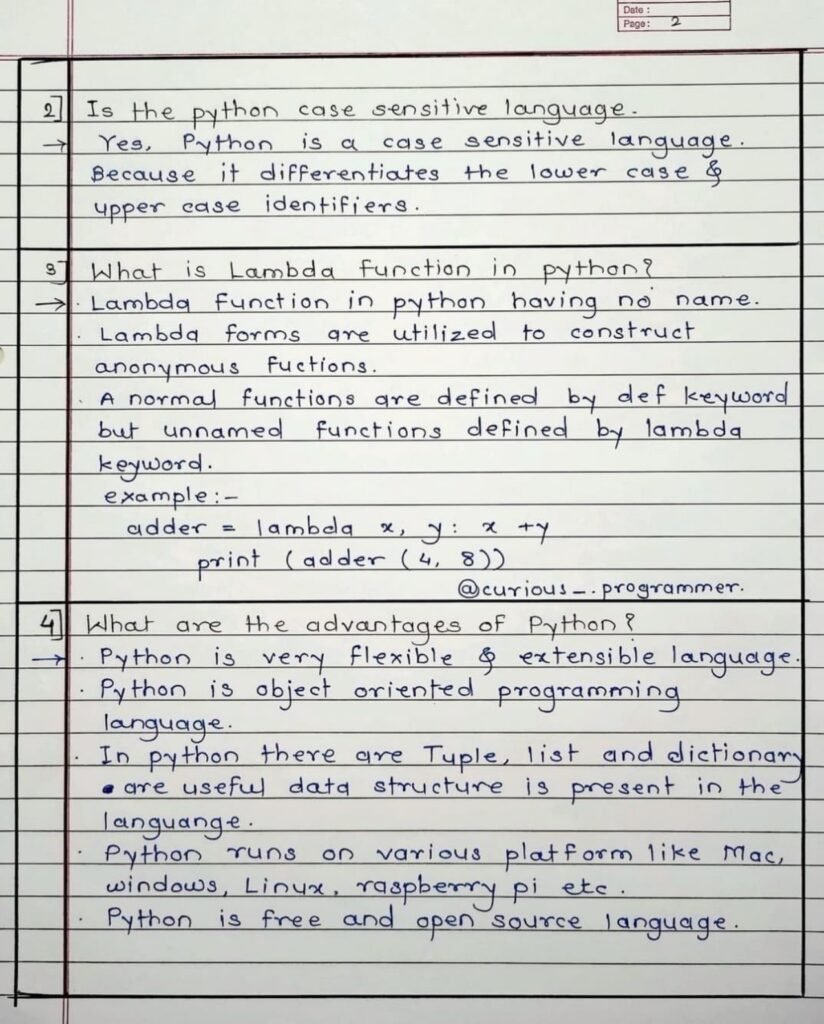 Date :
Page: 2
2] Is the python case sensitive language.
→ Yes, Python is a case sensitive language.
Because it differentiates the lower case &
upper case identifiers.
3] What is Lambda function in python?
→ · Lambda function in python having no name.
· Lambda forms are utilized to construct
anonymous fuctions.
· A normal functions are defined by def keyword
but unnamed functions defined by lambda
keyword.
example:-
adder = lambda x, y: x +y
print (adder (4, 8))
@curious_.programmer.
4] What are the advantages of Python?
→ · Python is very flexible & extensible language.
· Python is object oriented programming
language.
· In python there are Tuple, list and dictionary
are useful data structure is present in the
languange.
· Python runs on various platform like Mac,
windows, Linux, raspberry pi etc.
· Python is free and open source language.